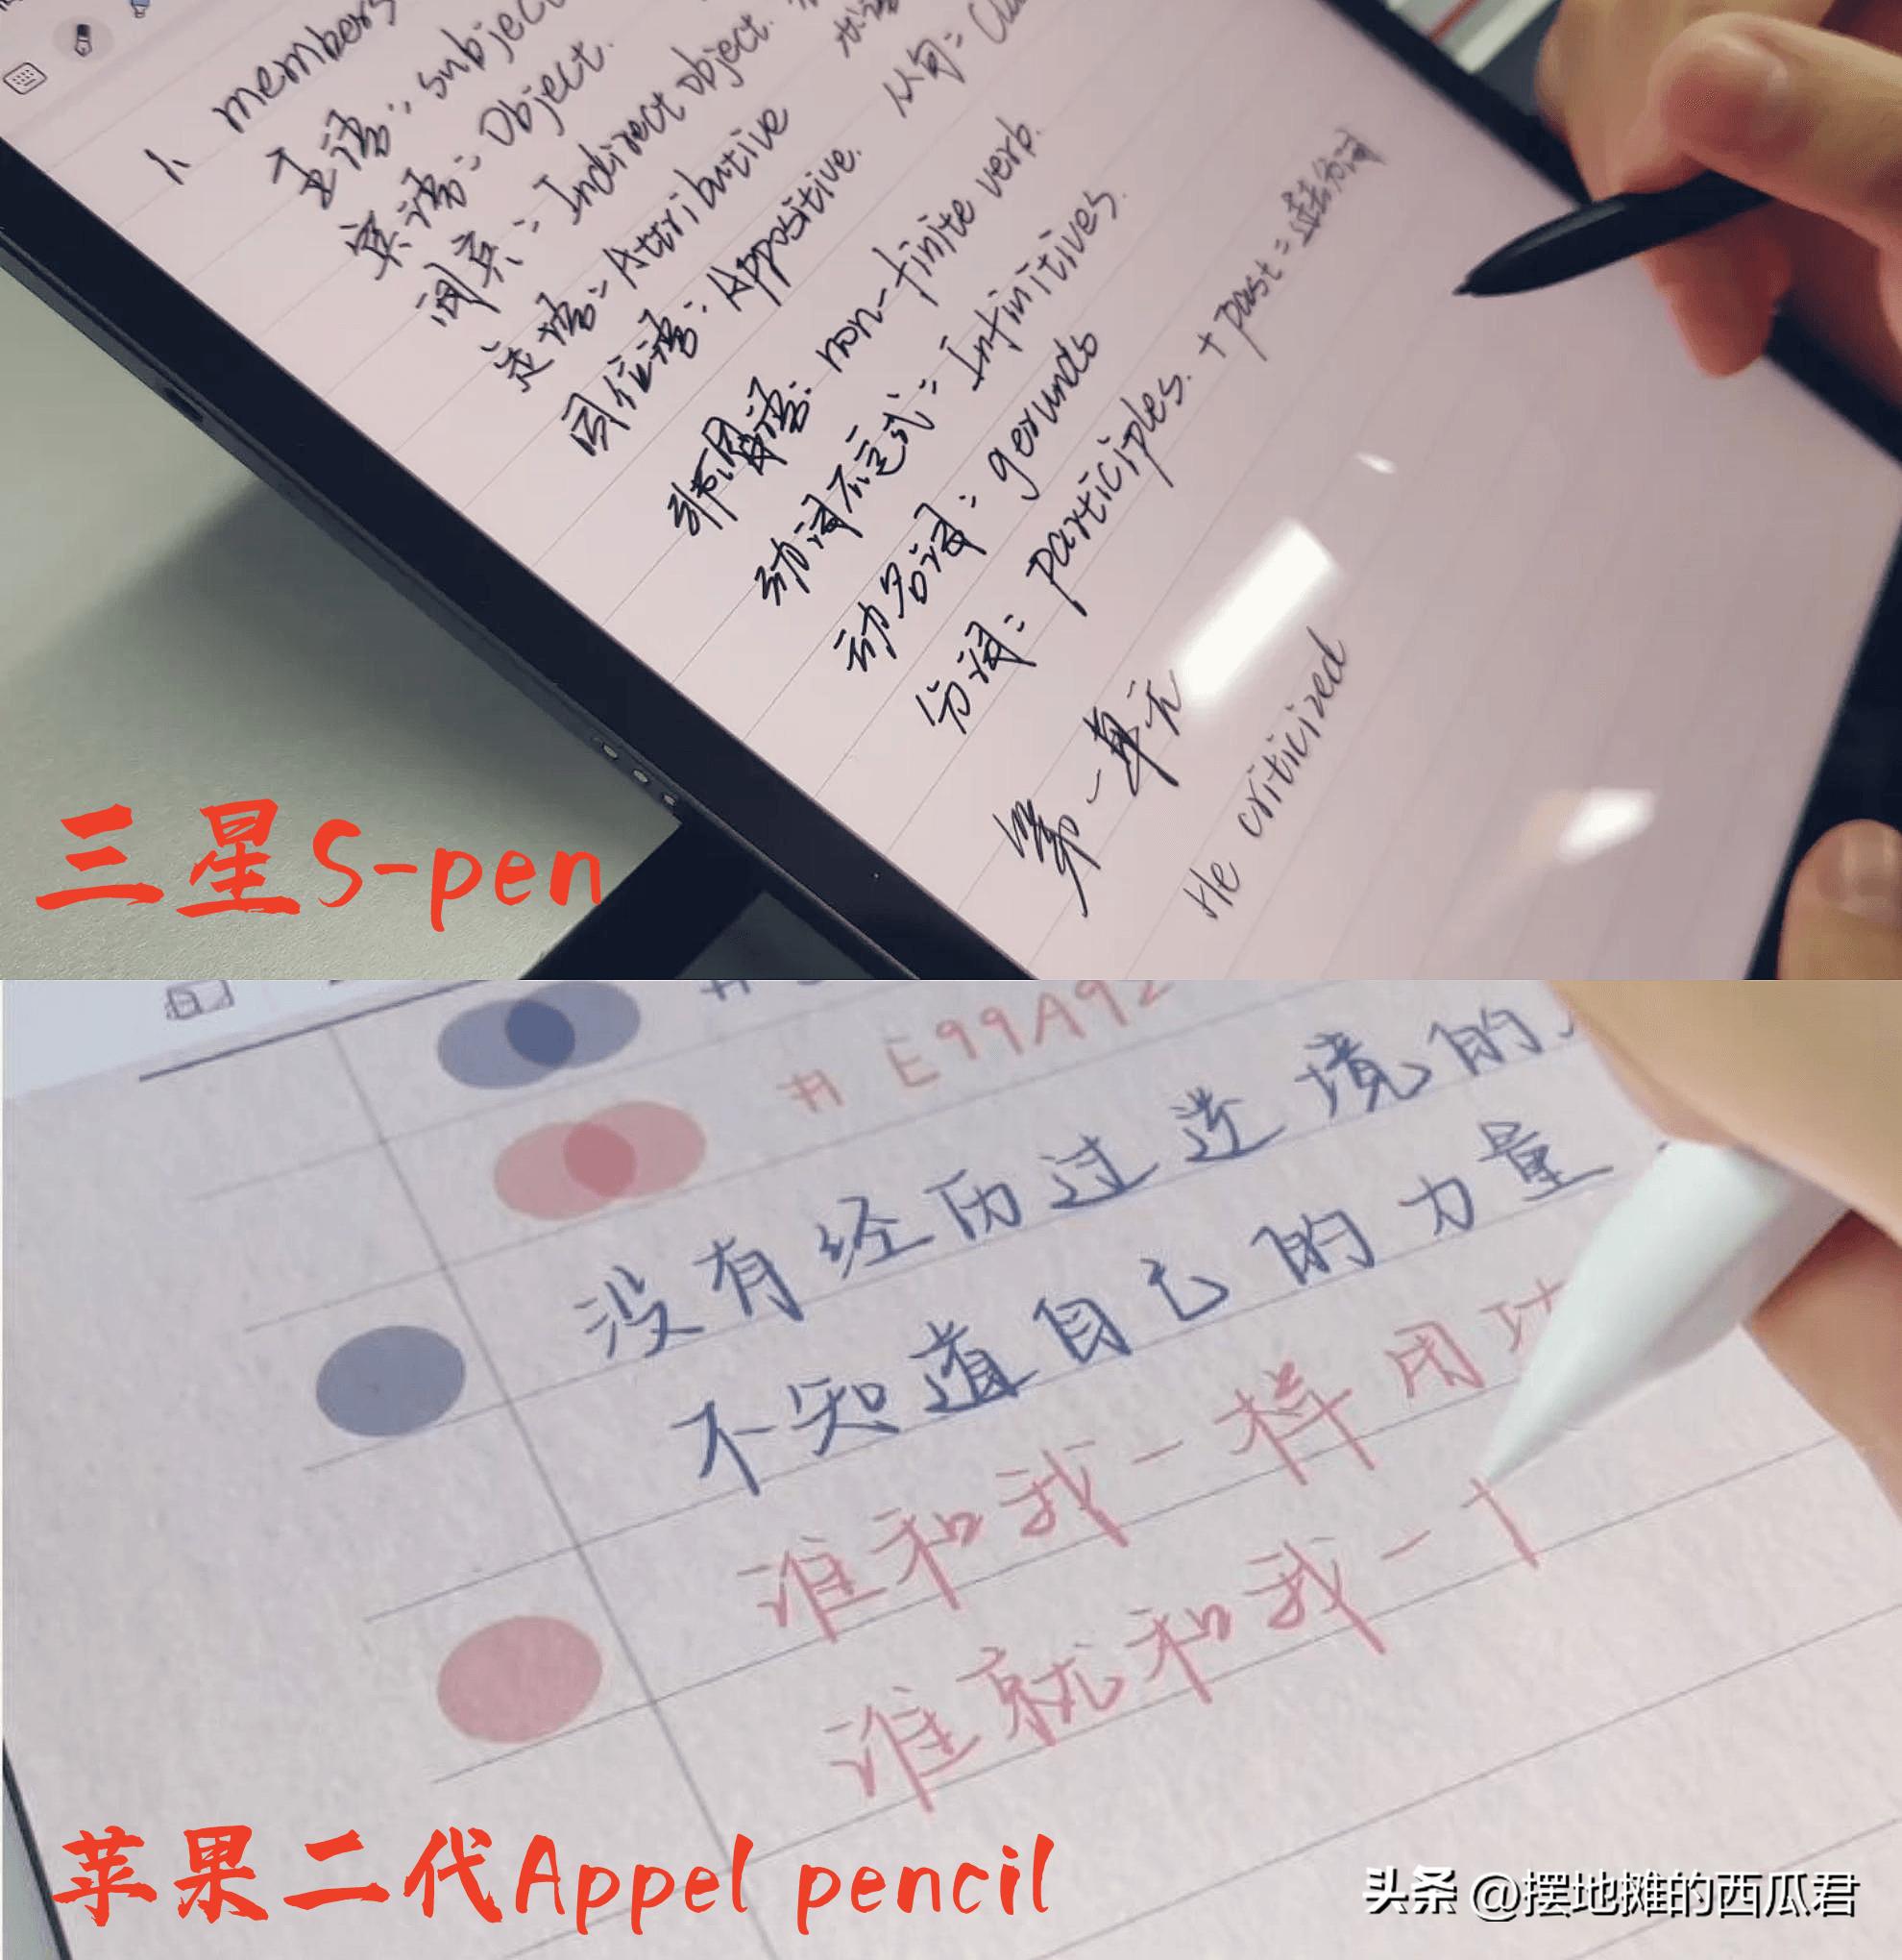 members
主语: subject
宾语: Object.
间宾: Indirect object.
定语: Attributive
同位语: Appositive.
从句:
非谓语: non-finite verb.
动词不定式: Infinitives.
动名词: gerunds
分词: participles. + past = 过去分词
第一单元
He criticized
三星S-pen
# E99A92
没有经历过逆境的
不知道自己的力量
谁和我一样用功
谁就和我一
苹果二代Appel pencil
头条 @摆地摊的西瓜君